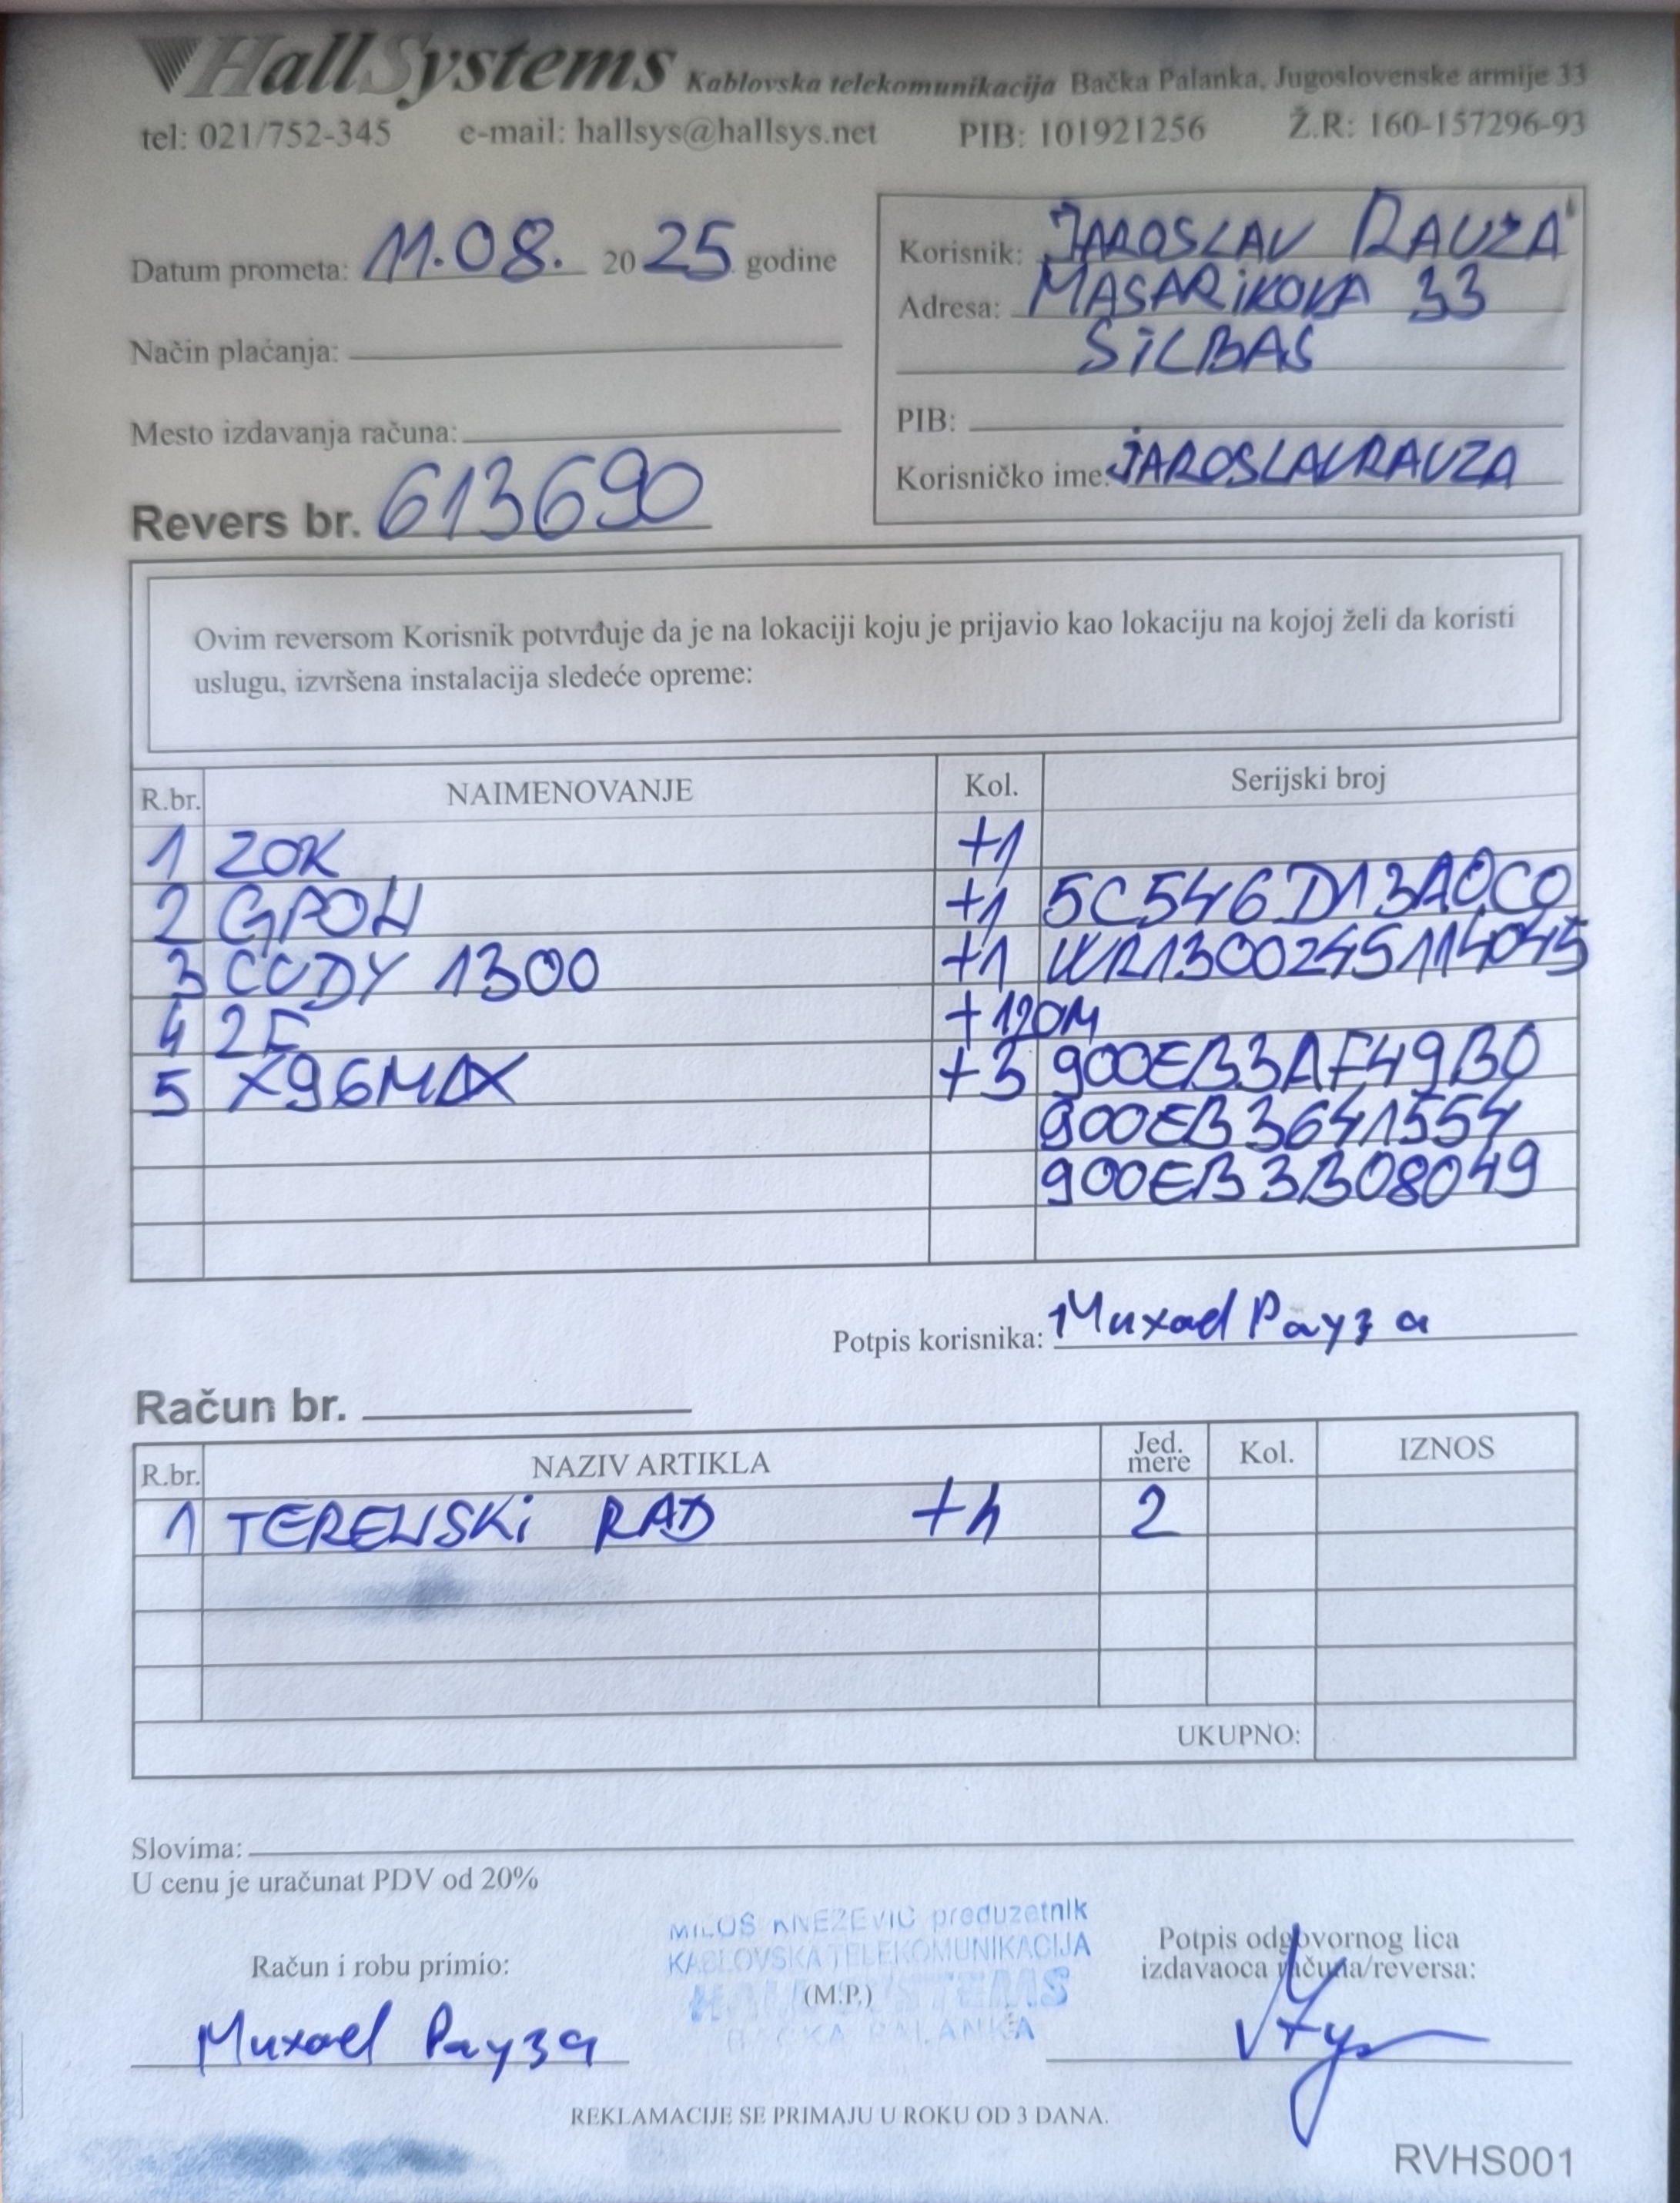 HallSystems Kablovska telekomunikacija Bačka Palanka, Jugoslovenske armije 33
tel: 021/752-345 e-mail: hallsys@hallsys.net PIB: 101921256 Ž.R: 160-157296-93
Datum prometa: 11.08. 2025 godine
Način plaćanja:
Mesto izdavanja računa:
Revers br. 613690
Korisnik: JAROSLAV RAUZA
Adresa: MASARIKOVA 33
SILBAŠ
PIB:
Korisničko ime: JAROSLAVRAUZA
Ovim reversom Korisnik potvrđuje da je na lokaciji koju je prijavio kao lokaciju na kojoj želi da koristi
uslugu, izvršena instalacija sledeće opreme:
R.br. NAIMENOVANJE Kol. Serijski broj
1 ZOK +1
2 GPON +1 5C546D13A0C0
3 CUDY 1300 +1 WR1300245114045
4 2F +120M
5 X96MAX +3 900EB3AF49B0
900EB3641554
900EB3B08049
Potpis korisnika: Михаел Рауза
Račun br.
R.br. NAZIV ARTIKLA Jed. mere Kol. IZNOS
1 TERENSKI RAD +h 2
UKUPNO:
Slovima:
U cenu je uračunat PDV od 20%
Račun i robu primio:
Михаел Рауза
MILOŠ KNEŽEVIĆ preduzetnik
KABLOVSKA TELEKOMUNIKACIJA
HALL SYSTEMS
(M.P.)
BAČKA PALANKA
Potpis odgovornog lica
izdavaoca računa/reversa:
REKLAMACIJE SE PRIMAJU U ROKU OD 3 DANA.
RVHS001